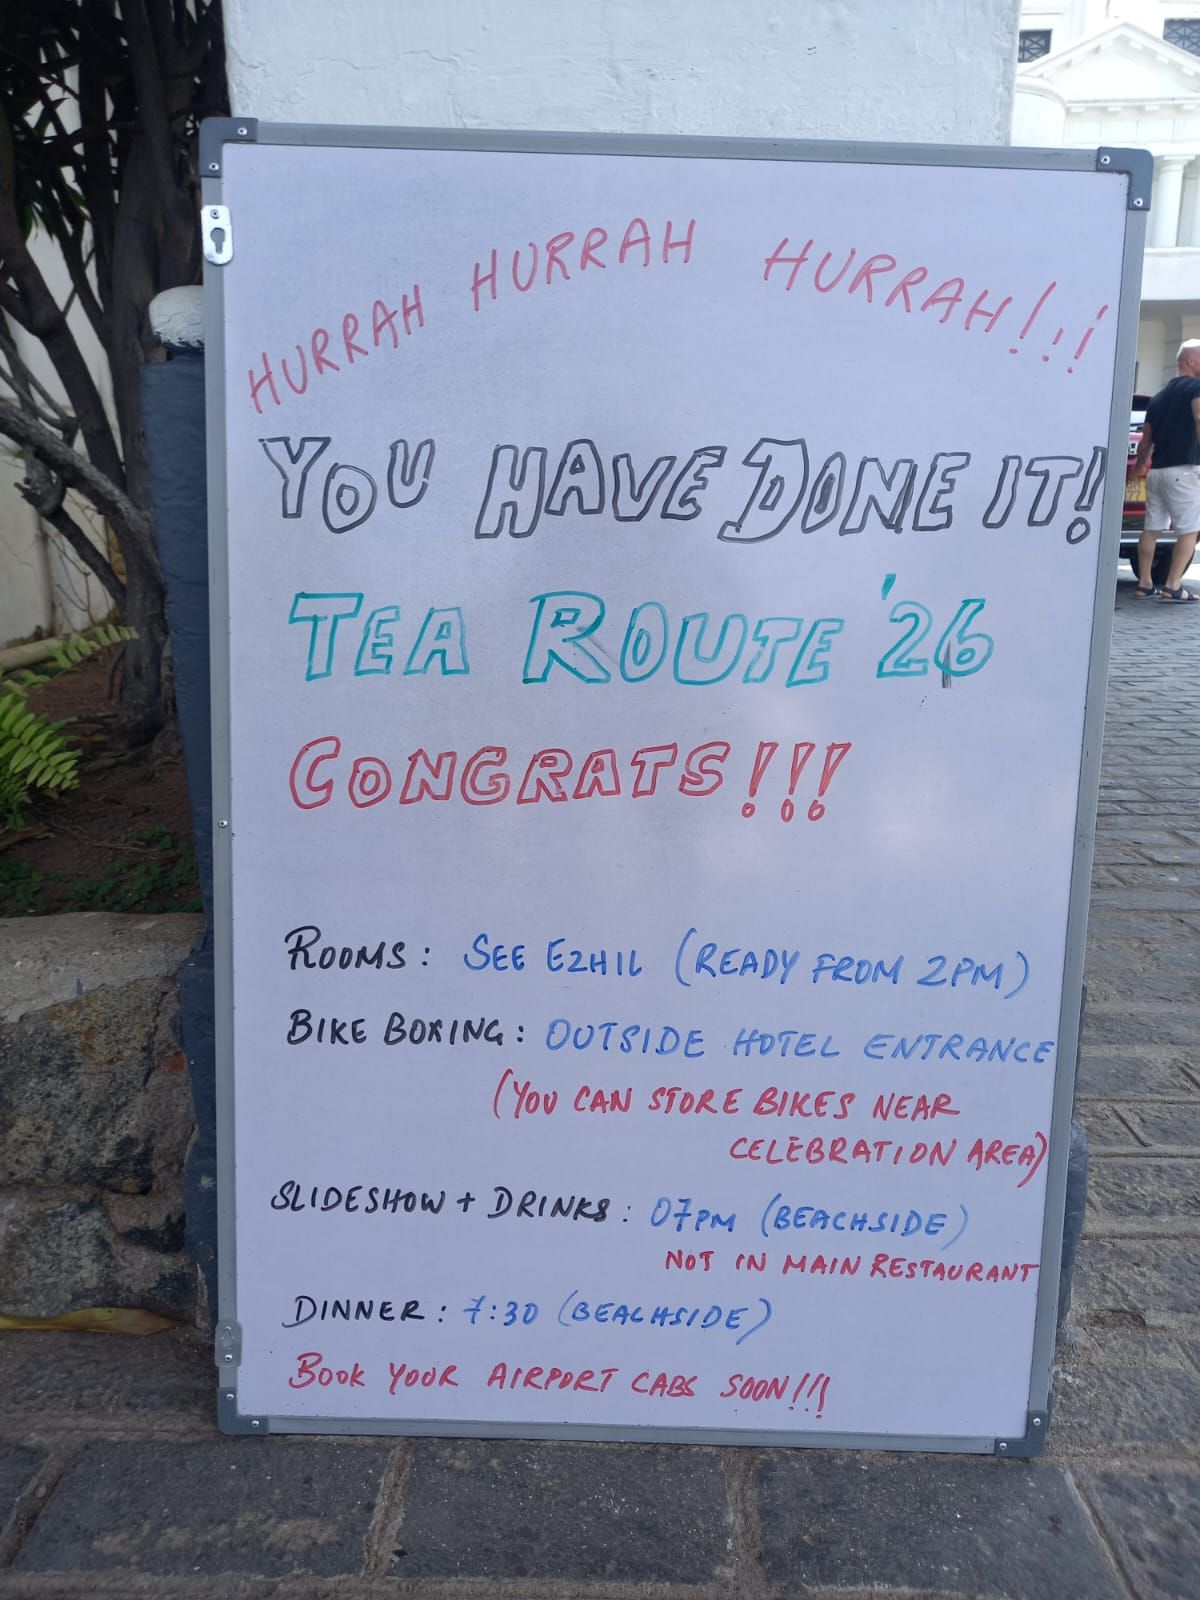 HURRAH HURRAH HURRAH!!!
YOU HAVE DONE IT!
TEA ROUTE '26
CONGRATS!!!
ROOMS: SEE EZHIL (READY FROM 2PM)
BIKE BOXING: OUTSIDE HOTEL ENTRANCE
(YOU CAN STORE BIKES NEAR
CELEBRATION AREA)
SLIDESHOW + DRINKS: 07PM (BEACHSIDE)
NOT IN MAIN RESTAURANT
DINNER: 7:30 (BEACHSIDE)
BOOK YOUR AIRPORT CABS SOON!!!